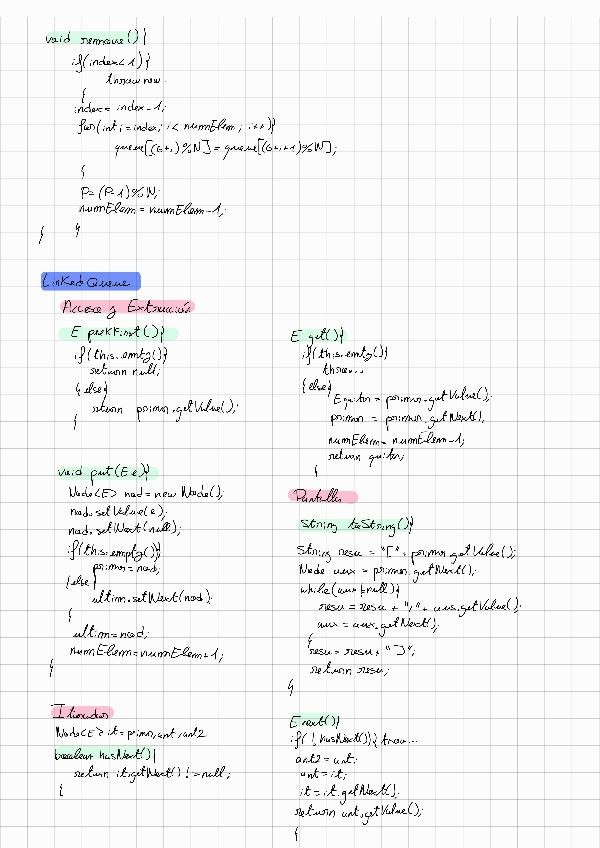 void remove(){
if(index<1){
throw new.
}
index = index-1;
for(int i=index; i< numElem; i++){
queue[(G+i)%N] = queue[(G+i+1)%N];
}
P=(P-1)%N;
numElem=numElem-1;
} }
Linked Queue
Acceso y Extracción
E peekFirst(){
if(this.emty()){
return null;
}else{
return primer.getValue();
}
void put(E e){
Node<E> nod = new Node();
nod.setValue(e);
nod.setNext(null);
if(this.empty()){
primer=nod;
}else{
ultim.setNext(nod);
}
ultim=nod;
numElem=numElem+1;
}
Iterador
Node<E> it=primer,ant,ant2
boolean hasNext(){
return it.getNext() != null;
}
E get(){
if(this.emty()){
throw...
}else{
E quitar = primer.getValue();
primer = primer.getNext();
numElem=numElem-1;
return quitar;
}
Pantalla
String toString(){
String resu = "[" + primer.getValue();
Node aux = primer.getNext();
while(aux!=null){
resu=resu + "," + aux.getValue();
aux = aux.getNext();
}
resu=resu+"]";
return resu;
}
E next(){
if(!hasNext()){ throw...
ant2=ant;
ant=it;
it=it.getNext();
return ant.getValue();
}